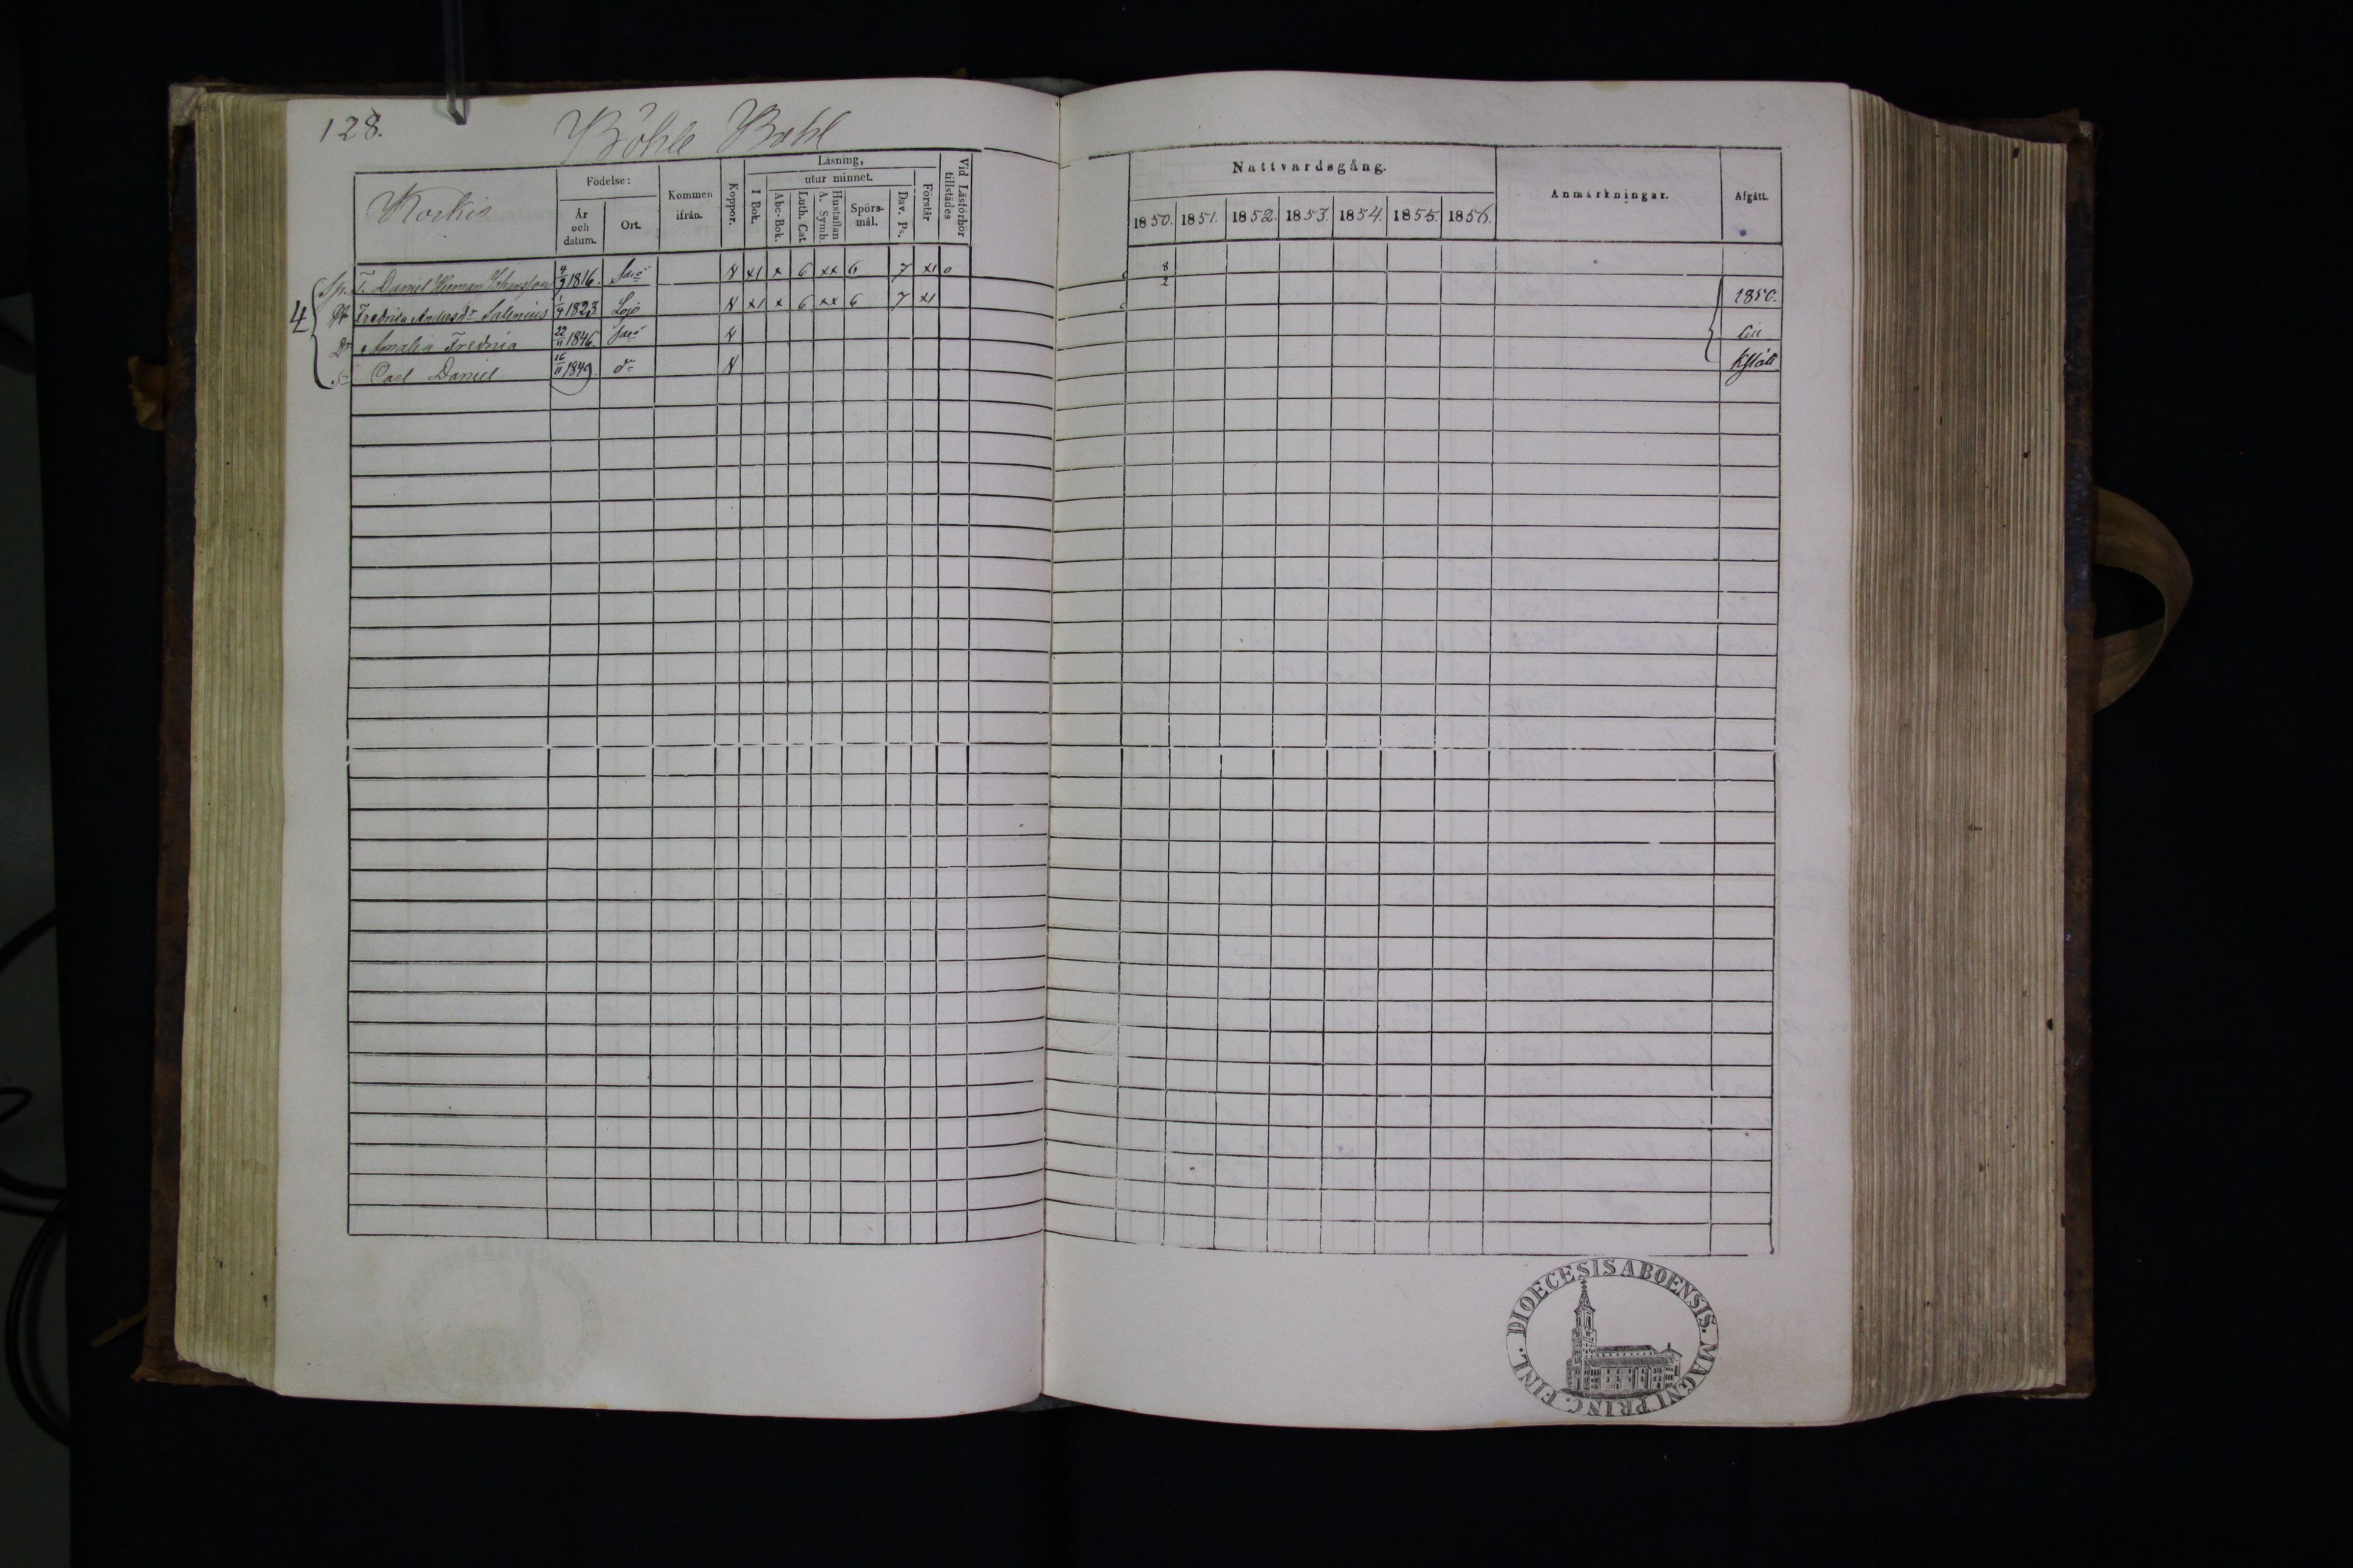 128.
Böhle Bohl
Korkis
Födelse:
År och datum.
Ort.
Kommen ifrån.
Koppor.
Läsning,
I Bok.
utur minnet.
Abc-Bok.
Luth. Cat
Hustaflan
A. Symb.
Spörs-mål.
Dav. Ps.
Förstår
Vid Läsförhör tillstädes
Nattvardsgång.
1850. 1851. 1852. 1853. 1854. 1855. 1856.
Anmärkningar.
Afgått.
Sp. T. Daniel Herman 9 1816. x1 x 6 xx 6 7 x1 0 8 2
4
Fredrica Andersdr Salenius 1/9 1823. Lojo x1 x 6 xx 6 7 x1 1850.
Dr Amalia Fredrica 22/11 1846.
Sn Carl Daniel 16/11 1849. do
DIOECESIS ABOENSIS. MAGNI PRINC. FINL.